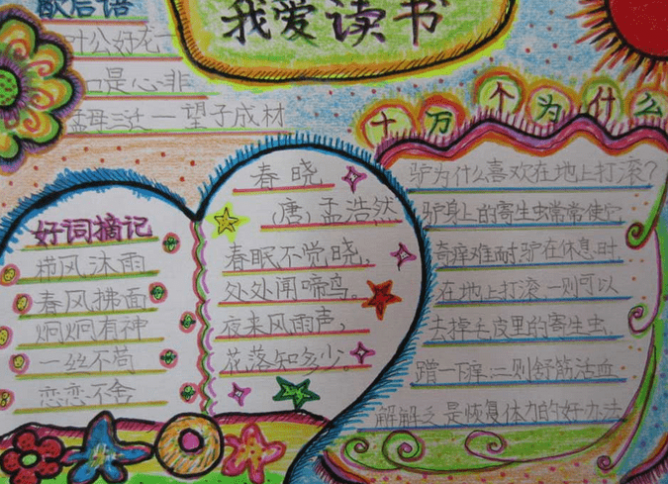 歇后语
叶公好龙一
口是心非
孟母三迁一望子成材
我爱读书
好词摘记
栉风沐雨
春风拂面
炯炯有神
一丝不苟
恋恋不舍
春晓
(唐)孟浩然
春眠不觉晓,
处处闻啼鸟。
夜来风雨声,
花落知多少。
十万个为什么
驴为什么喜欢在地上打滚?
驴身上的寄生虫常常使它
奇痒难耐,驴在休息时
在地上打滚,一则可以
去掉毛皮里的寄生虫,
蹭一下痒;二则舒筋活血
解解乏是恢复体力的好办法